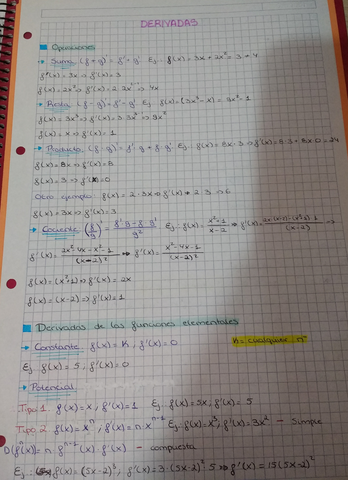 DERIVADAS
Operaciones
→ Suma (f + g)' = f' + g' Ej. f(x) = 3x + 2x² = 3 + 4
f'(x) = 3x → f'(x) = 3
f(x) = 2x² → f'(x) = 2·2x²⁻¹ → 4x
→ Resta (f - g)' = f' - g' Ej. f(x) = (3x³ - x) = 9x² - 1
f(x) = 3x³ → f'(x) = 3·3x² → 9x²
f(x) = x → f'(x) = 1
→ Producto (f · g)' = f' · g + f · g' Ej. f(x) = 8x · 3 → f'(x) = 8·3 + 8x·0 = 24
f(x) = 8x → f'(x) = 8
f(x) = 3 → f'(x) = 0
Otro ejemplo: f(x) = 2 · 3x → f'(x) = 2·3 → 6
f(x) = 3x → f'(x) = 3
→ Cociente (f/g)' = f'·g - f·g' / g² Ej. f(x) = x²-1 / x-2 → f'(x) =
f'(x) = 2x²-4x-x²-1 / (x-2)² → f'(x) = x²-4x-1 / (x-2)²
f(x) = (x²+1) → f'(x) = 2x
f(x) = (x-2) → f'(x) = 1
Derivadas de las funciones elementales
→ Constante f(x) = K, f'(x) = 0 K = cualquier nº
Ej. f(x) = 5, f'(x) = 0
→ Potencial
Tipo 1 f(x) = x, f'(x) = 1 Ej. f(x) = 5x, f'(x) = 5
Tipo 2 f(x) = xⁿ, f'(x) = n·xⁿ⁻¹ Ej. f(x) = x³, f'(x) = 3x² - Simple
D fⁿ(x) = n · fⁿ⁻¹(x) · f'(x) - compuesta
Ej: f(x) = (5x-2)³, f'(x) = 3·(5x-2)²·5 → f'(x) = 15(5x-2)²